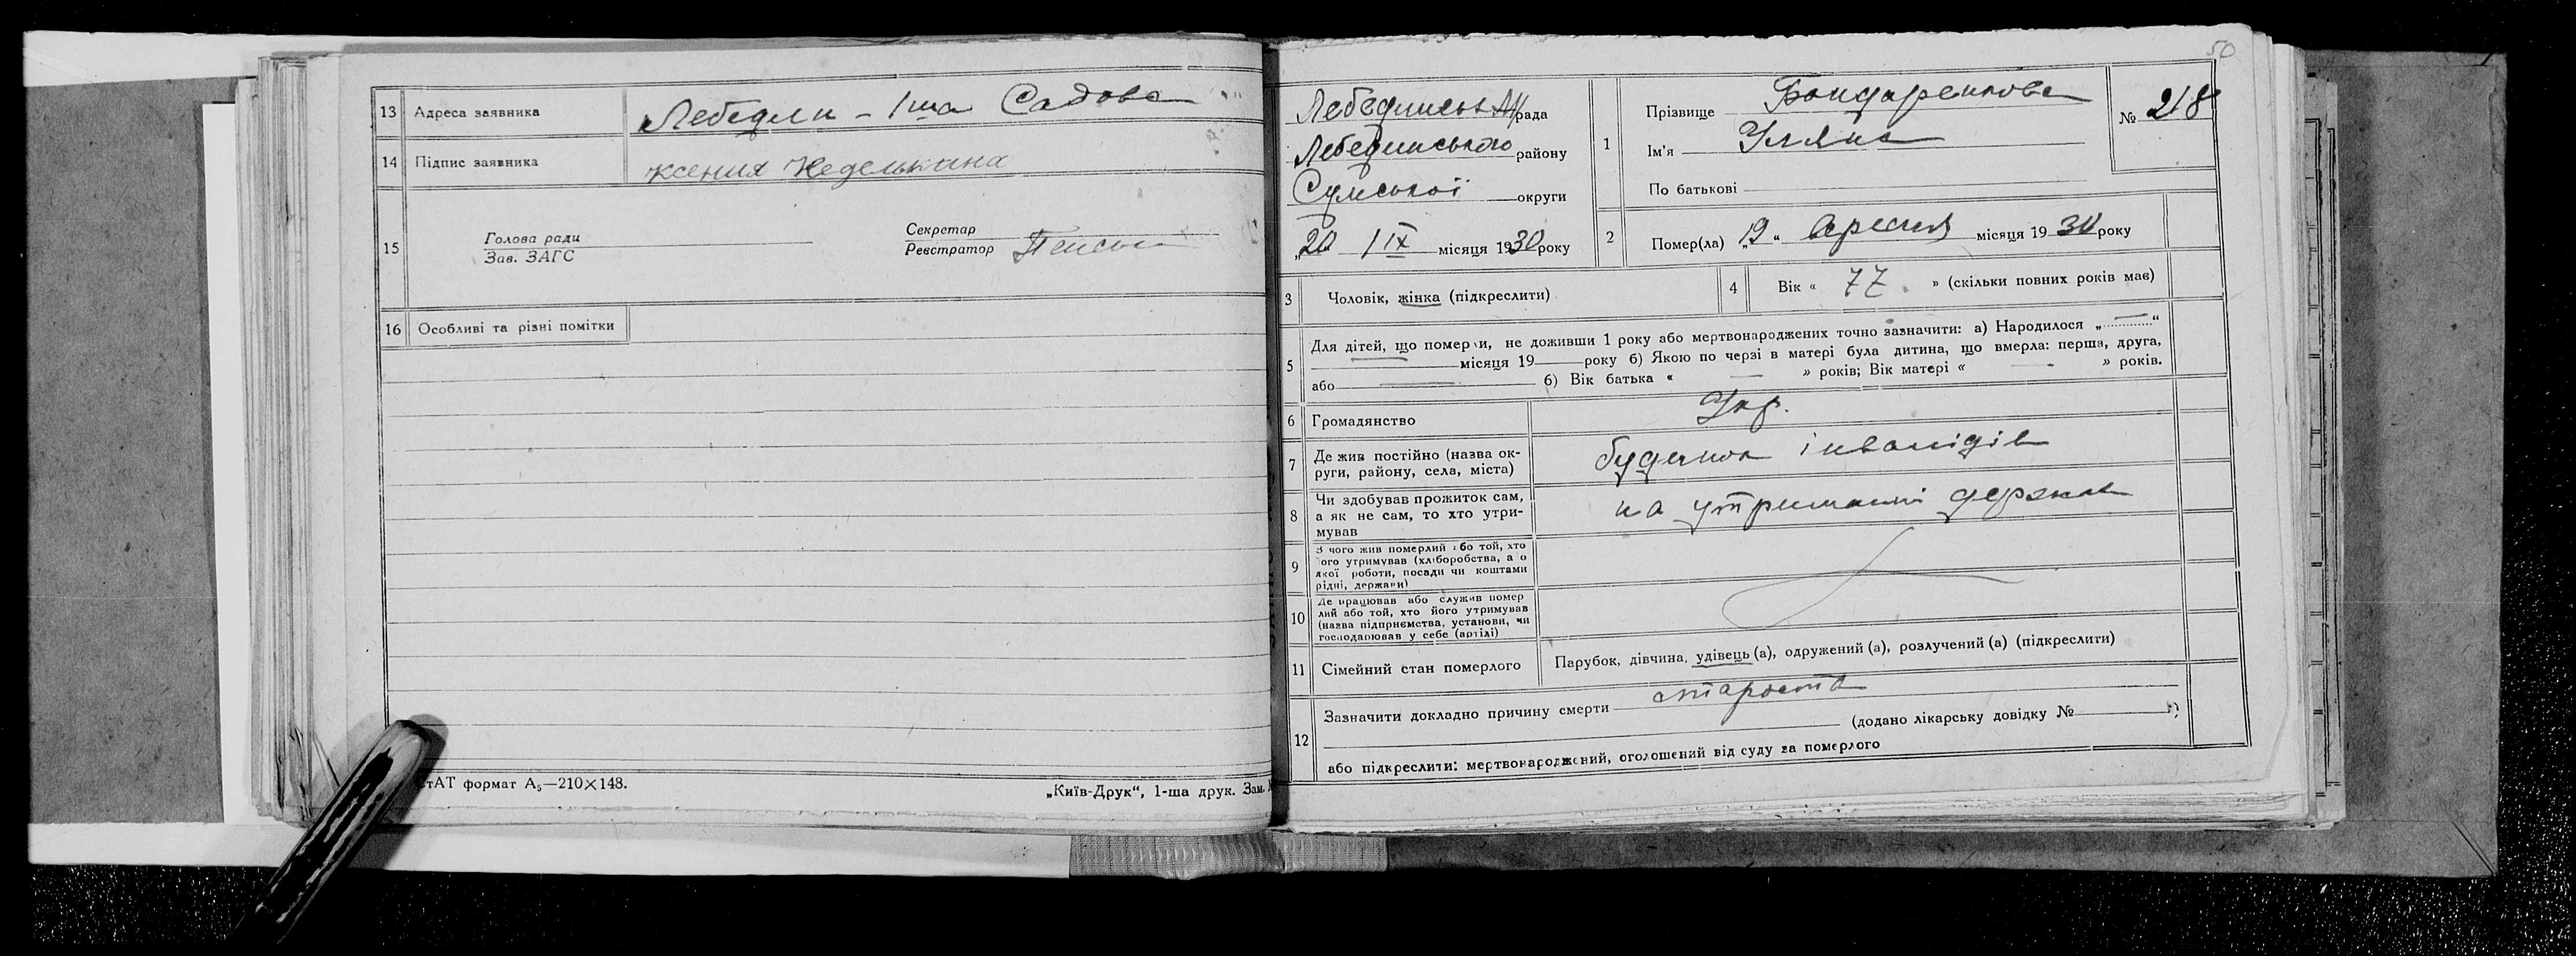 13 Адреса заявника Лебедин – 1ша Садова
14 Підпис заявника ксения Неделькина
15 Голова ради
Зав. ЗАГС
Секретар
Реєстратор
16 Особливі та різні помітки
СтАТ формат А₅—210×148.
„Київ-Друк“, 1-ша друк. Зам.
50
Лебединськ рада
Лебединського району
Сумської округи
„20 / IX місяця 1930 року
1 Прізвище Бондаренкова
Ім'я Уляна
По батькові
№ 218
2 Помер(ла) „19“ вересня місяця 1930 року
3 Чоловік, жінка (підкреслити)
4 Вік « 77 » (скільки повних років має)
5 Для дітей, що померли, не доживши 1 року або мертвонароджених точно зазначити: а) Народилося „—“
місяця 19 року б) Якою по черзі в матері була дитина, що вмерла: перша, друга,
або — б) Вік батька « — » років; Вік матері « — » років.
6 Громадянство Укр.
7 Де жив постійно (назва ок-
руги, району, села, міста) будинок інвалідів
8 Чи здобував прожиток сам,
а як не сам, то хто утри-
мував на утриманні держав
9 З чого жив померлий або той, хто
його утримував (хліборобства, а о
якої роботи, посади чи коштами
рідні, держави)
10 Де працював або служив помер
лий або той, хто його утримував
(назва підприємства, установи, чи
господарював у себе (артілі)
11 Сімейний стан померлого Парубок, дівчина, удівець (а), одружений (а), розлучений (а) (підкреслити)
12 Зазначити докладно причину смерти старость
(додано лікарську довідку № )
або підкреслити: мертвонароджений, оголошений від суду за померлого